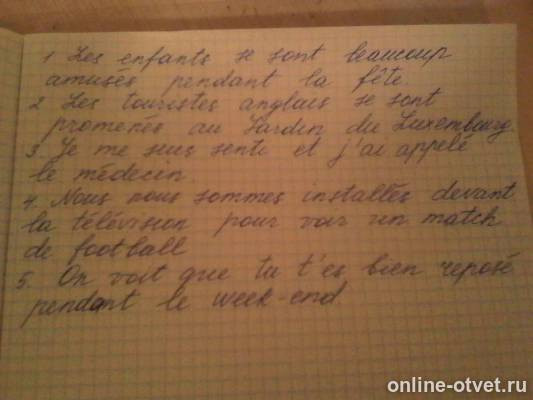 1 Les enfants se sont beaucoup
amusés pendant la fête.
2 Les touristes anglais se sont
promenés au Jardin du Luxembourg.
3. Je me suis senti et j'ai appelé
le médecin.
4. Nous nous sommes installés devant
la télévision pour voir un match
de football
5. On voit que tu t'es bien reposé
pendant le week-end.
online-otvet.ru